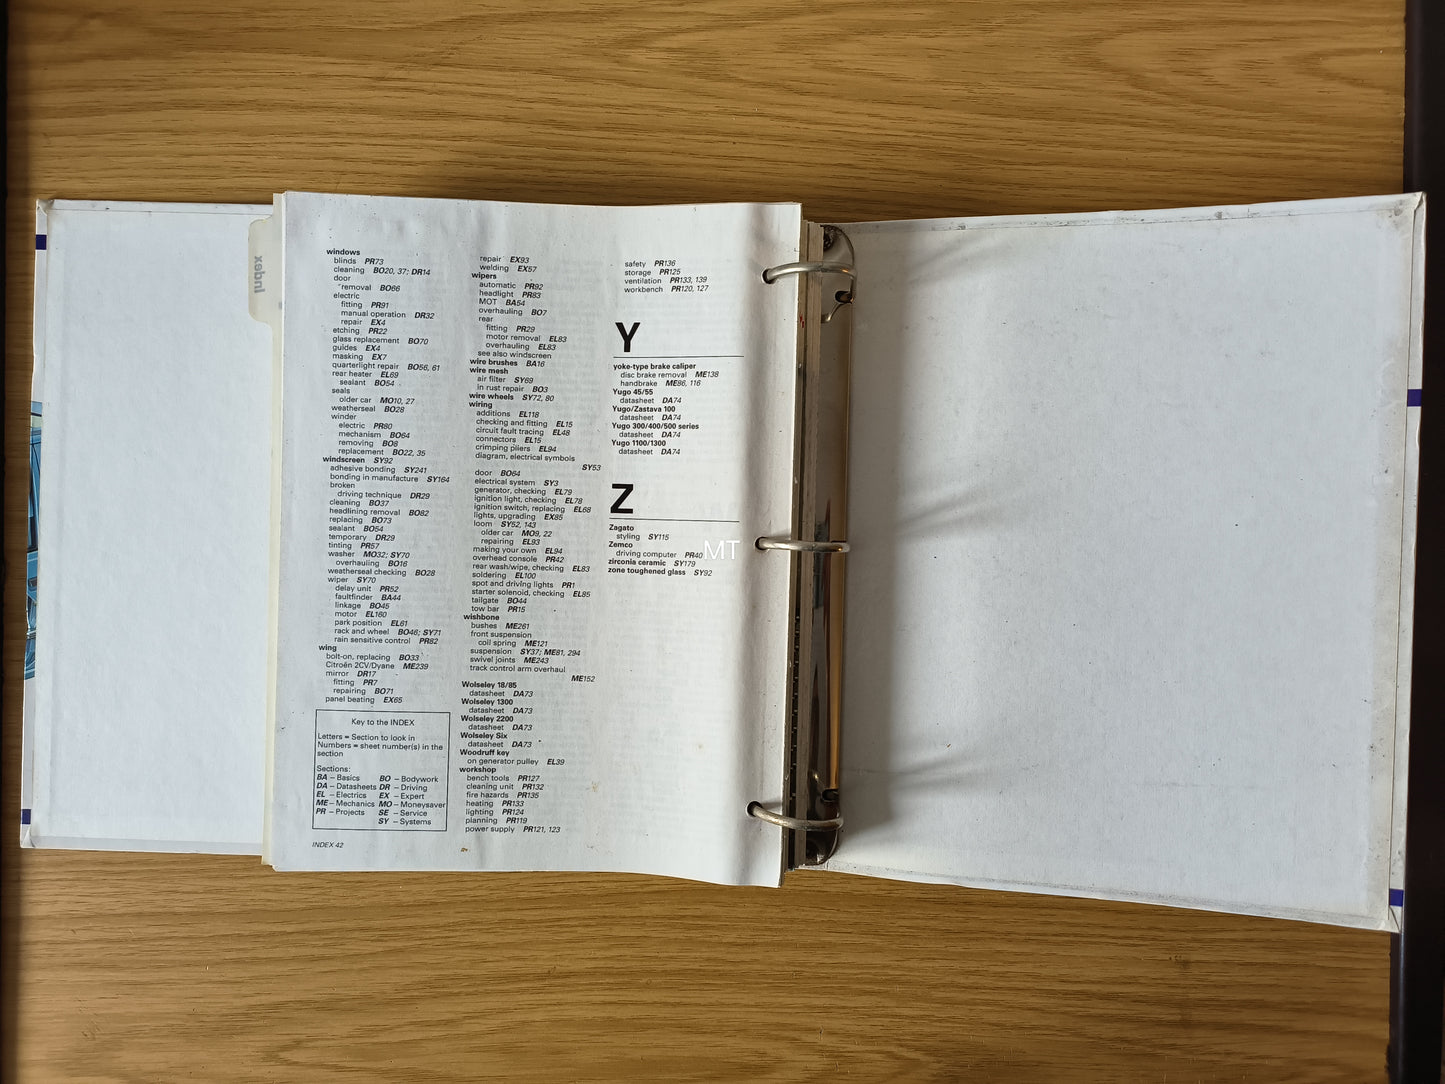 Index
windows
blinds PR73
cleaning BO20, 37; DR14
door
removal BO66
electric
fitting PR91
manual operation DR32
repair EX4
etching PR22
glass replacement BO70
guides EX4
masking EX7
quarterlight repair BO56, 61
rear heater EL69
sealant BO54
seals
older car MO10, 27
weatherseal BO28
winder
electric PR80
mechanism BO64
removing BO8
replacement BO22, 35
windscreen SY92
adhesive bonding SY241
bonding in manufacture SY164
broken
driving technique DR29
cleaning BO37
headlining removal BO82
replacing BO73
sealant BO54
temporary DR29
tinting PR57
washer MO32; SY70
overhauling BO16
weatherseal checking BO28
wiper SY70
delay unit PR52
faultfinder BA44
linkage BO45
motor EL160
park position EL61
rack and wheel BO46; SY71
rain sensitive control PR82
wing
bolt-on, replacing BO33
Citroën 2CV/Dyane ME239
mirror DR17
fitting PR7
repairing BO71
panel beating EX65
Key to the INDEX
Letters = Section to look in
Numbers = sheet number(s) in the
section
Sections:
BA – Basics BO – Bodywork
DA – Datasheets DR – Driving
EL – Electrics EX – Expert
ME – Mechanics MO – Moneysaver
PR – Projects SE – Service
SY – Systems
INDEX 42
repair EX93
welding EX57
wipers
automatic PR92
headlight PR83
MOT BA54
overhauling BO7
rear
fitting PR29
motor removal EL83
overhauling EL83
see also windscreen
wire brushes BA16
wire mesh
air filter SY69
in rust repair BO3
wire wheels SY72, 80
wiring
additions EL118
checking and fitting EL15
circuit fault tracing EL48
connectors EL15
crimping pliers EL94
diagram, electrical symbols
SY53
door BO64
electrical system SY3
generator, checking EL79
ignition light, checking EL78
ignition switch, replacing EL68
lights, upgrading EX85
loom SY52, 143
older car MO9, 22
repairing EL93
making your own EL94
overhead console PR42
rear wash/wipe, checking EL83
soldering EL100
spot and driving lights PR1
starter solenoid, checking EL85
tailgate BO44
tow bar PR15
wishbone
bushes ME261
front suspension
coil spring ME121
suspension SY37; ME81, 294
swivel joints ME243
track control arm overhaul
ME152
Wolseley 18/85
datasheet DA73
Wolseley 1300
datasheet DA73
Wolseley 2200
datasheet DA73
Wolseley Six
datasheet DA73
Woodruff key
on generator pulley EL39
workshop
bench tools PR127
cleaning unit PR132
fire hazards PR135
heating PR133
lighting PR124
planning PR119
power supply PR121, 123
safety PR136
storage PR125
ventilation PR133, 139
workbench PR120, 127
Y
yoke-type brake caliper
disc brake removal ME138
handbrake ME86, 116
Yugo 45/55
datasheet DA74
Yugo/Zastava 100
datasheet DA74
Yugo 300/400/500 series
datasheet DA74
Yugo 1100/1300
datasheet DA74
Z
Zagato
styling SY115
Zemco
driving computer PR40
zirconia ceramic SY179
zone toughened glass SY92
MT